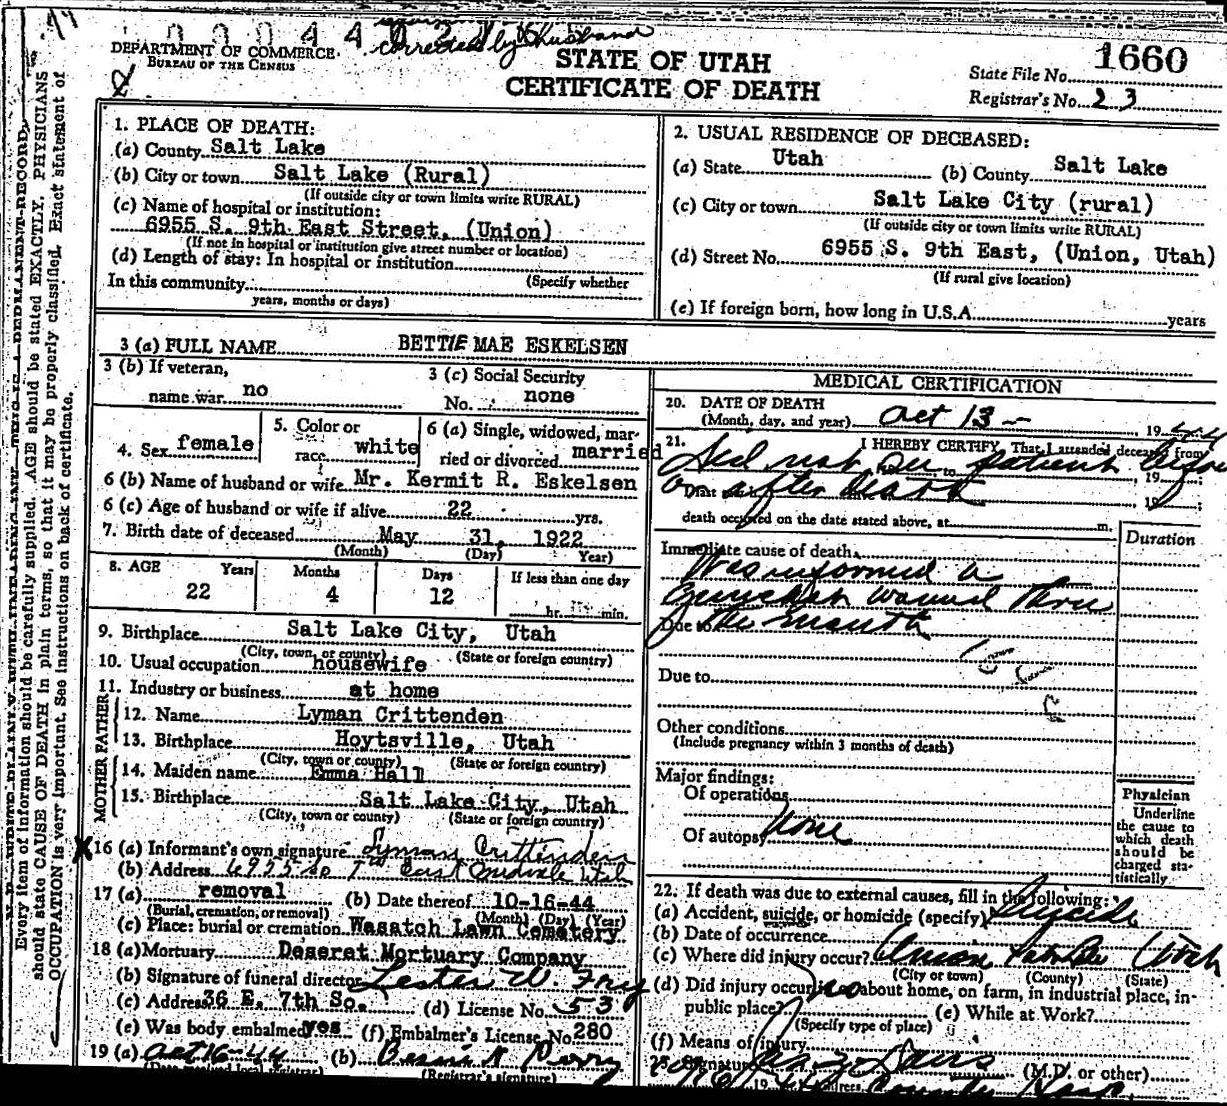 corrected by husband
DEPARTMENT OF COMMERCE
BUREAU OF THE CENSUS
STATE OF UTAH
CERTIFICATE OF DEATH
State File No. 1660
Registrar's No. 23
Every item of information should be carefully supplied. AGE should be stated EXACTLY. PHYSICIANS
should state CAUSE OF DEATH in plain terms, so that it may be properly classified. Exact statement of
OCCUPATION is very important. See instructions on back of certificate.
1. PLACE OF DEATH:
(a) County Salt Lake
(b) City or town Salt Lake (Rural)
(If outside city or town limits write RURAL)
(c) Name of hospital or institution:
6955 S. 9th East Street, (Union)
(If not in hospital or institution give street number or location)
(d) Length of stay: In hospital or institution
In this community (Specify whether
years, months or days)
2. USUAL RESIDENCE OF DECEASED:
(a) State Utah (b) County Salt Lake
(c) City or town Salt Lake City (rural)
(If outside city or town limits write RURAL)
(d) Street No. 6955 S. 9th East, (Union, Utah)
(If rural give location)
(e) If foreign born, how long in U.S.A. years
3 (a) FULL NAME BETTIE MAE ESKELSEN
3 (b) If veteran,
name war no
3 (c) Social Security
No. none
4. Sex female
5. Color or
race white
6 (a) Single, widowed, mar-
ried or divorced married
6 (b) Name of husband or wife Mr. Kermit R. Eskelsen
6 (c) Age of husband or wife if alive 22 yrs.
7. Birth date of deceased May 31, 1922
(Month) (Day) Year)
8. AGE Years Months Days If less than one day
22 4 12 hr. min.
9. Birthplace Salt Lake City, Utah
(City, town, or county) (State or foreign country)
10. Usual occupation housewife
11. Industry or business at home
FATHER
12. Name Lyman Crittenden
13. Birthplace Hoytsville, Utah
(City, town or county) (State or foreign country)
MOTHER
14. Maiden name Emma Hall
15. Birthplace Salt Lake City, Utah
(City, town or county) (State or foreign country)
X 16 (a) Informant's own signature Lyman Crittenden
(b) Address East Midvale Utah
17 (a) removal (b) Date thereof 10-16-44
(Burial, cremation, or removal) (Month) (Day) (Year)
(c) Place: burial or cremation Wasatch Lawn Cemetery
18 (a) Mortuary Deseret Mortuary Company
(b) Signature of funeral director Lester W.
(c) Address 36 E. 7th So. (d) License No. 53
(e) Was body embalmed yes (f) Embalmer's License No. 280
19 (a) Oct 16-44 (b)
(Registrar's signature)
MEDICAL CERTIFICATION
20. DATE OF DEATH
(Month, day, and year) Oct 13 - 1944
21. I HEREBY CERTIFY, That I attended deceased from
Did not see patient before
or after death
death occurred on the date stated above, at m.
Duration
Immediate cause of death
Was informed a
gunshot wound thru
Due to the mouth
Due to
Other conditions
(Include pregnancy within 3 months of death)
Major findings:
Of operations
Of autopsy None
Physician
Underline
the cause to
which death
should be
charged sta-
tistically.
22. If death was due to external causes, fill in the following:
(a) Accident, suicide, or homicide (specify) Suicide
(b) Date of occurrence
(c) Where did injury occur? Union Salt Lake Utah
(City or town) (County) (State)
(d) Did injury occur in or about home, on farm, in industrial place, in
public place? (e) While at Work?
(Specify type of place)
(f) Means of injury
Signature (M.D. or other)